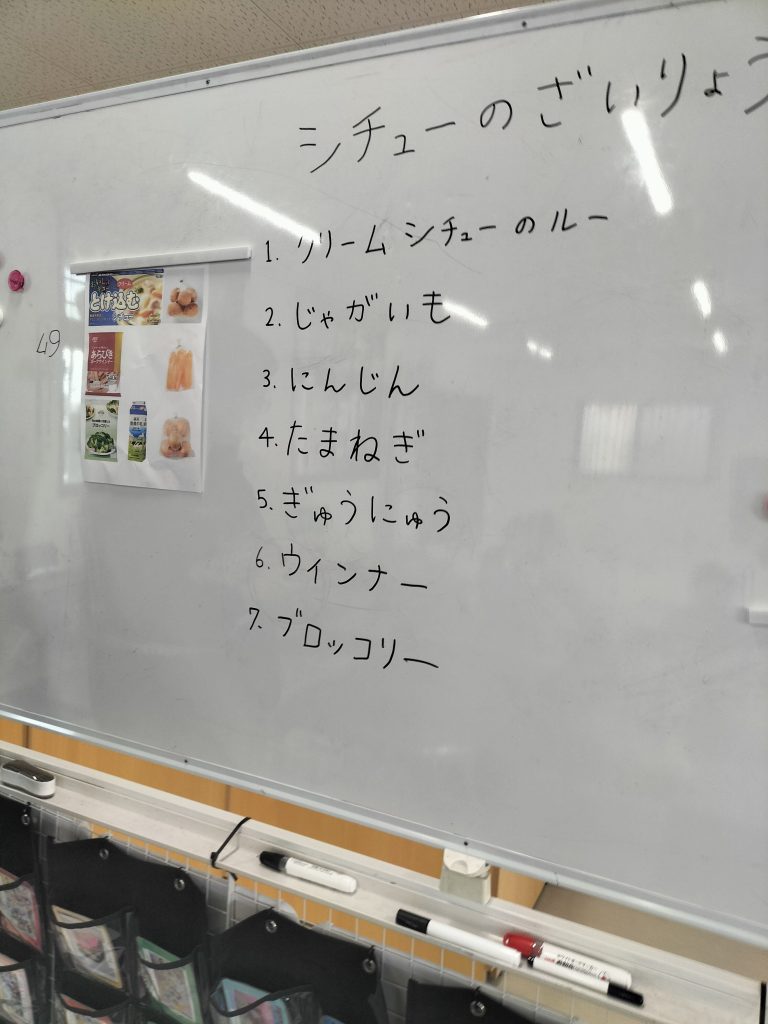 シチューのざいりょう
1. クリームシチューのルー
2. じゃがいも
3. にんじん
4. たまねぎ
5. ぎゅうにゅう
6. ウインナー
7. ブロッコリー
49
とけ込む
あらびき
ブロッコリー